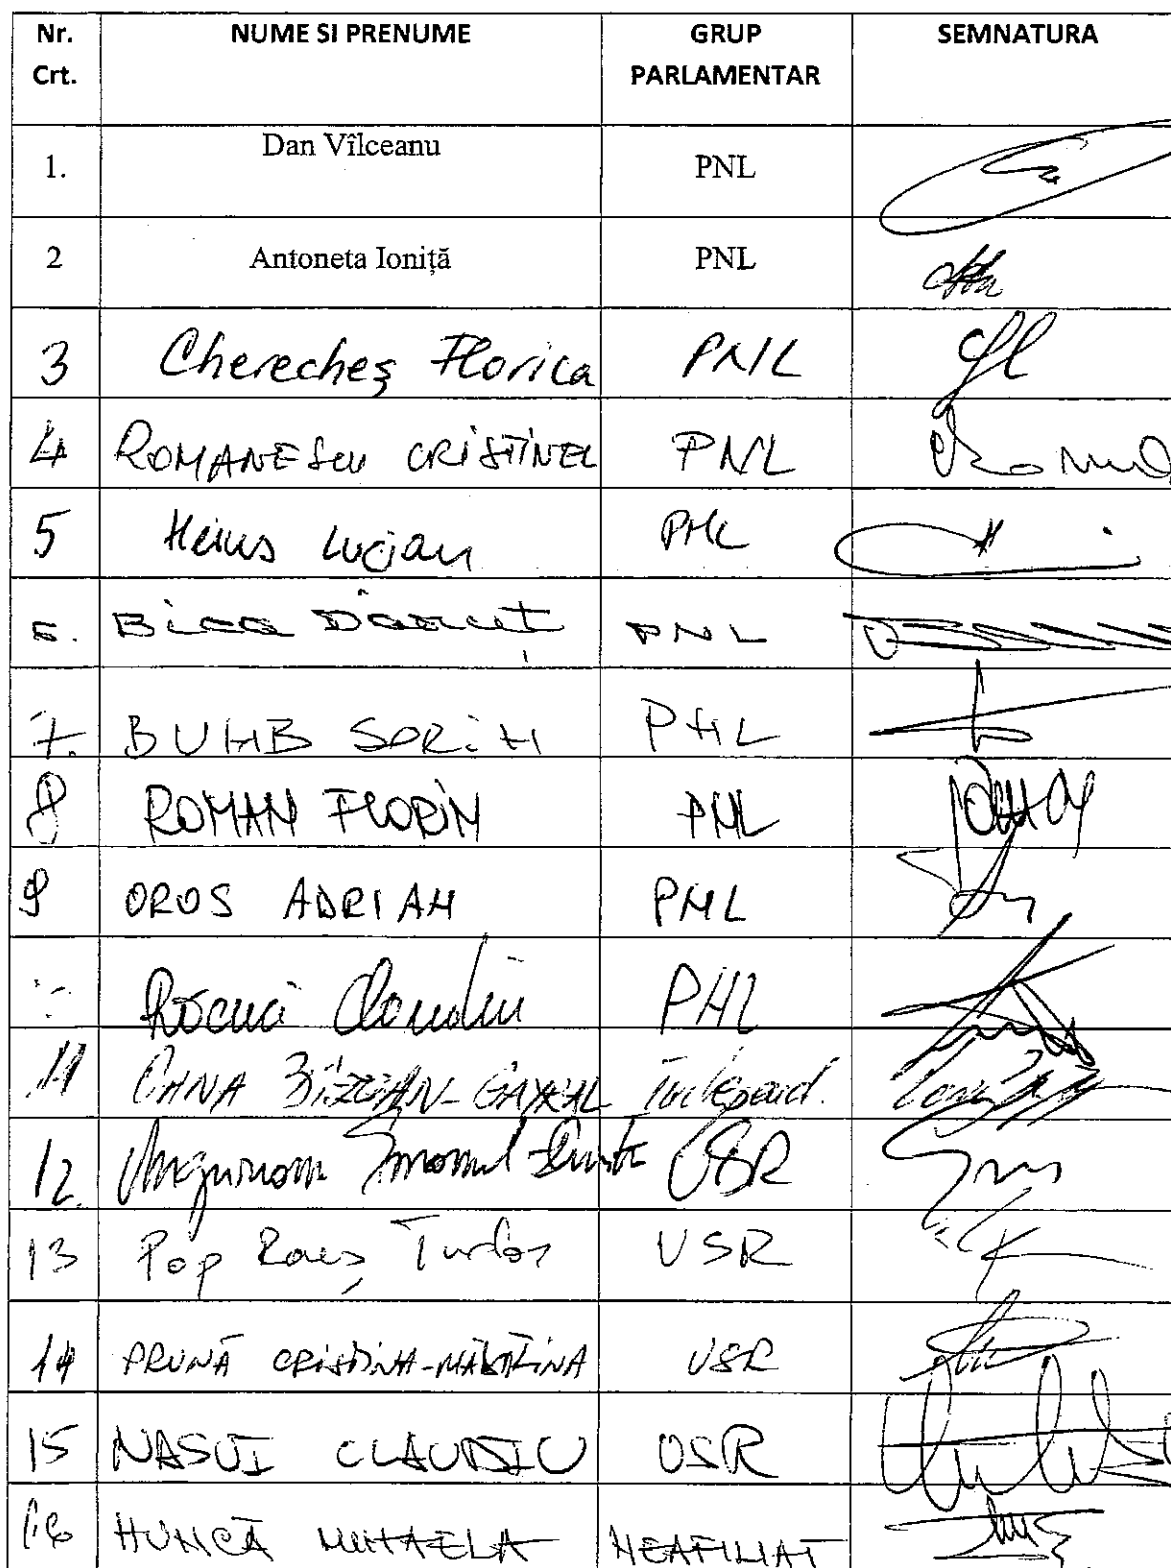 Nr. Crt. NUME SI PRENUME GRUP PARLAMENTAR SEMNATURA
1. Dan Vîlceanu PNL
2 Antoneta Ioniță PNL
3 Cherecheș Florica PNL
4 ROMANESCU CRISTINEL PNL
5 Heius Lucian PNL
6. Bica Dănuț PNL
7. BUMB SORIN PNL
8 ROMAN FLORIN PNL
9 OROS ADRIAN PNL
Claudiu PNL
11 OANA BÎZGAN-GAYRAL Independ.
12. Ungureanu Emanuel Dumitru USR
13 Pop Rareș Tudor USR
14 PRUNĂ CRISTINA-MĂDĂLINA USR
15 NASUI CLAUDIU USR
16 HUNCĂ MIHAELA NEAFILIAT